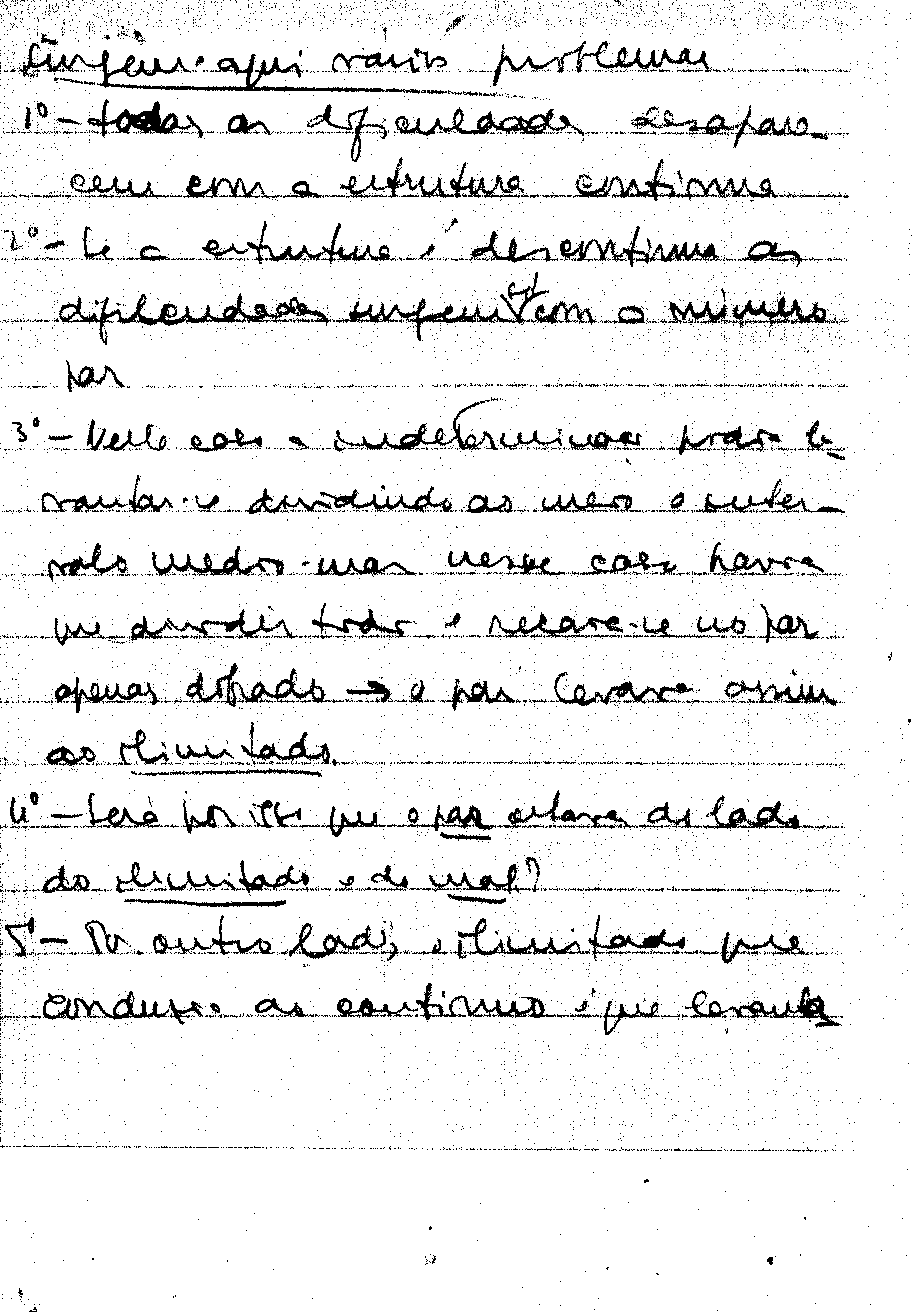 Surgem aqui vários problemas
1º - todas as dificuldades desapare-
cem com a estrutura contínua
2º - Se a estrutura é descontínua as
dificuldades surgem só com o número
par
3º - Neste caso a indeterminação podia le-
vantar-se dividindo ao meio o inter-
valo médio - mas nesse caso havia
que dividir todos e recaia-se no par
apenas dobrado → o par levava assim
ao ilimitado.
4º - Será por isso que o par estava do lado
do ilimitado e do mal?
5º - Por outro lado, o ilimitado que
conduzia ao contínuo é que levanta